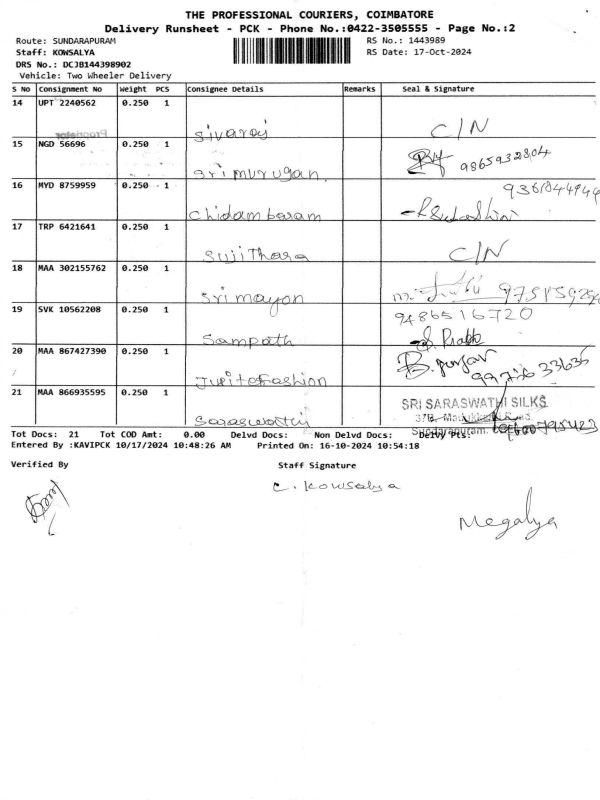 THE PROFESSIONAL COURIERS, COIMBATORE
Delivery Runsheet - PCK - Phone No.:0422-3505555 - Page No.:2
Route: SUNDARAPURAM RS No.: 1443989
Staff: KOWSALYA RS Date: 17-Oct-2024
DRS No.: DCJB144398902
Vehicle: Two Wheeler Delivery
S No Consignment No Weight PCS Consignee Details Remarks Seal & Signature
14 UPT 2240562 0.250 1
Sivaraj C/N
15 NGD 56696 0.250 1
Srimurugan. 9865932804
16 MYD 8759959 0.250 1
Chidambaram
17 TRP 6421641 0.250 1
Sujithara C/N
18 MAA 302155762 0.250 1
Srimayon
19 SVK 10562208 0.250 1 9486516720
Sampath
20 MAA 867427390 0.250 1
JupiteFashion
21 MAA 866935595 0.250 1
SRI SARASWATHI SILKS
Saraswathi Sundarapuram.
Tot Docs: 21 Tot COD Amt: 0.00 Delvd Docs: Non Delvd Docs: Delvy Pts:
Entered By :KAVIPCK 10/17/2024 10:48:26 AM Printed On: 16-10-2024 10:54:18
Verified By Staff Signature
C. Kowsalya
Megalya